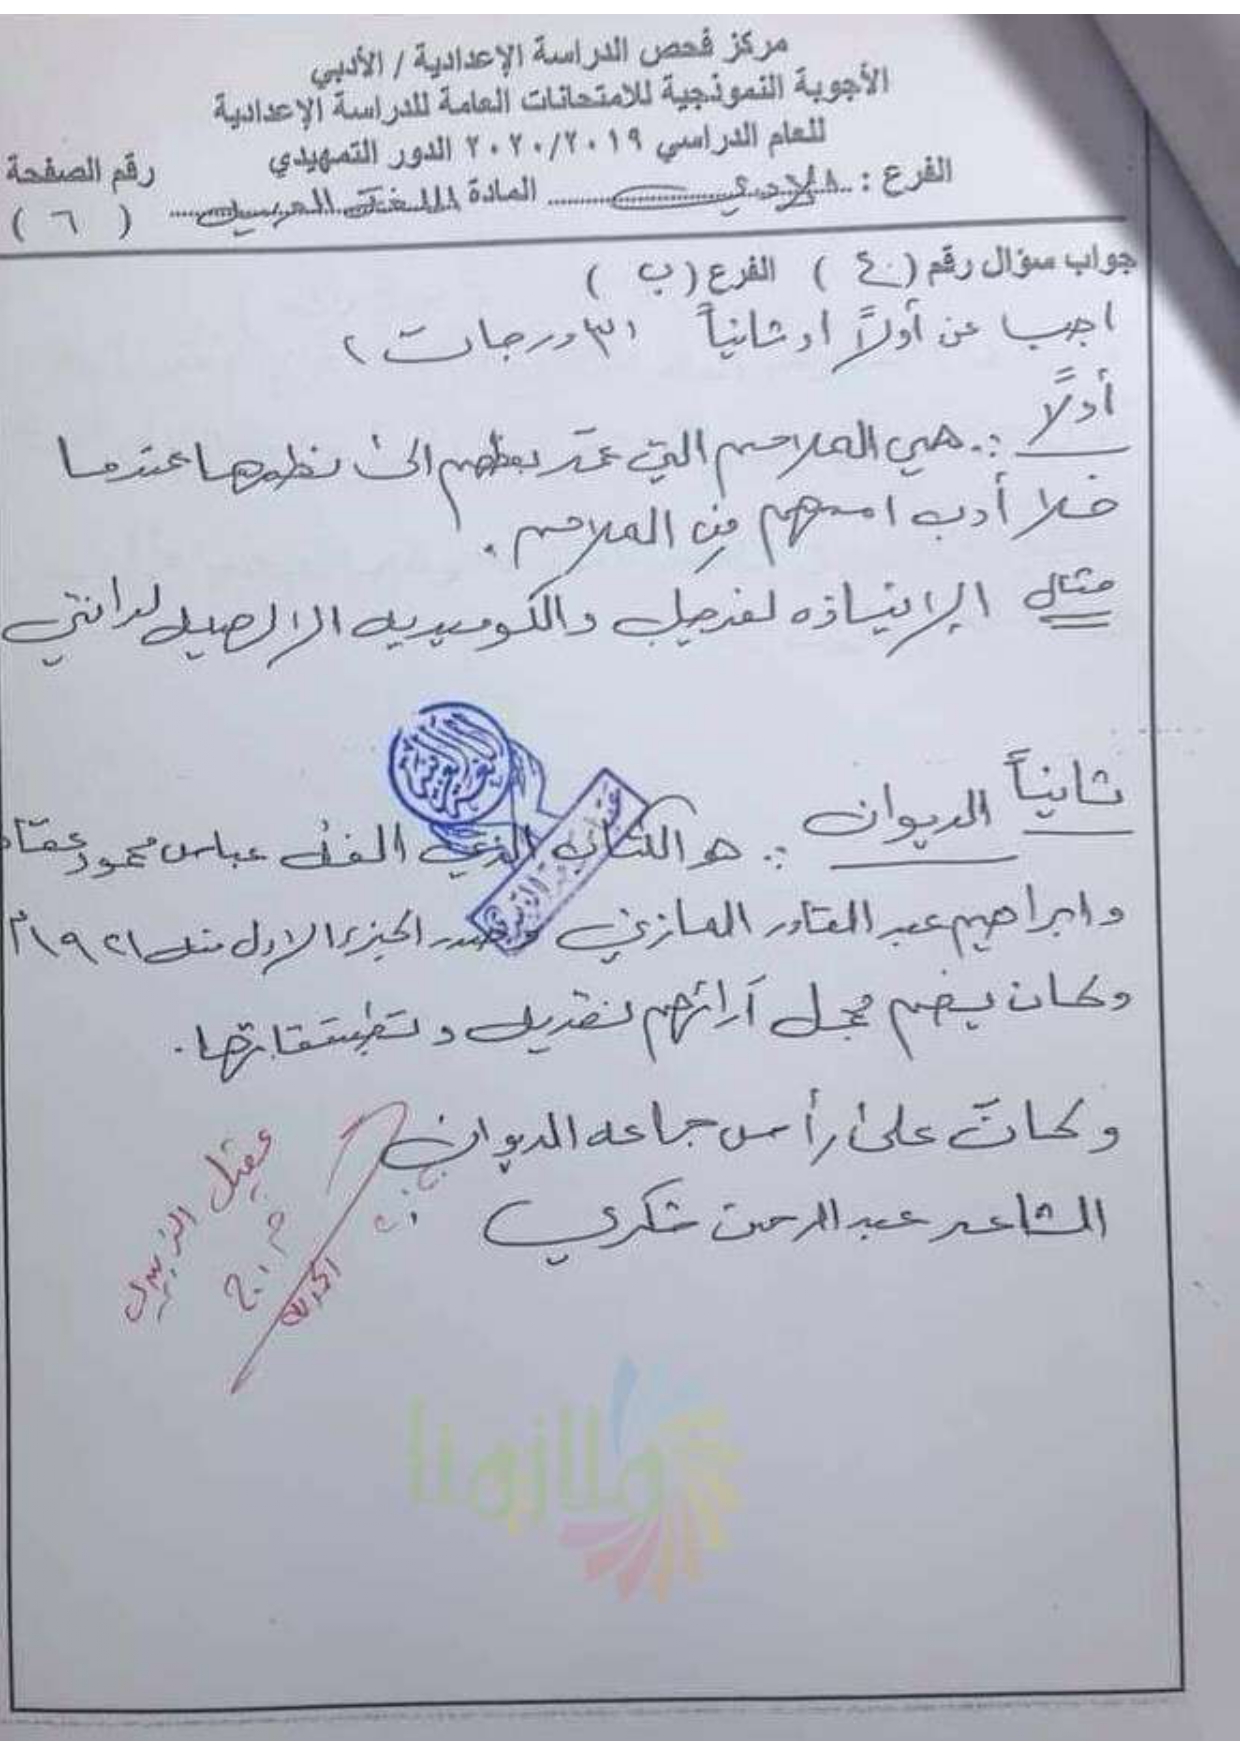 مركز فحص الدراسة الإعدادية / الأدبي
الأجوبة النموذجية للامتحانات العامة للدراسة الإعدادية
للعام الدراسي ٢٠٢٠/٢٠١٩ الدور التمهيدي
الفرع : الادبي المادة اللغة العربية
رقم الصفحة
( ٦ )
جواب سؤال رقم ( ٤ ) الفرع ( ب )
اجب عن أولاً او ثانياً (٣ درجات)
أولاً :. هي الملاحم التي عمد بعضهم الى نظمها عندما
خلا أدب امتهم من الملاحم .
مثال الإنياذه لفرجيل والكوميديه الالهيه لدانتي
ثانياً الديوان :. هو الكتاب الذي الفه عباس محمود عقاد
وابراهيم عبد القادر المازني وصدر الجزء الاول منه ١٩٢١م
وكان يضم مجمل آرائهم نقديه و تطبيقاتها .
وكان على رأس جماعه الديوان
الشاعر عبد الرحمن شكري
ملازمنا